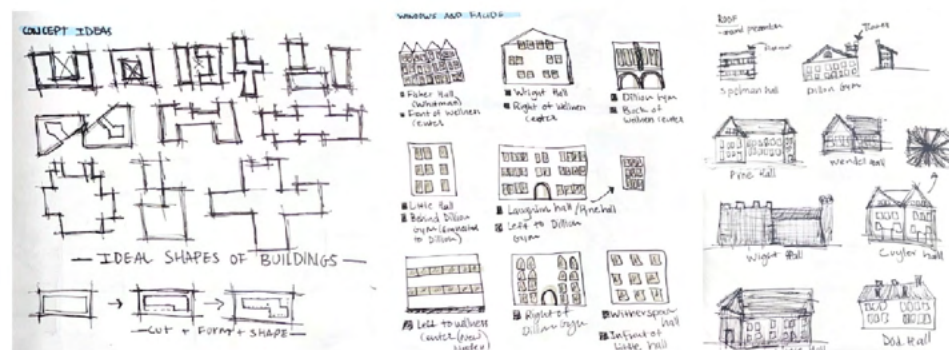 CONCEPT IDEAS
— IDEAL SHAPES OF BUILDINGS —
— CUT + FORM + SHAPE —
WINDOWS AND
Fisher Hall
(Whitman)
Front of wellness
center
Wright Hall
Right of wellness
center
Dillion Gym
Back of
wellness center
Little Hall
Behind Dillion
Gym (
to Dillion)
Laughlin hall / Pyne hall
Left to Dillion
Gym
Left to wellness
center (New
Right of
Dillion Gym
Witherspoon
hall
Infront of
Little hall
ROOF
Spelman hall
Dillon Gym
Pyne Hall
Wendel Hall
Wight Hall
Cuyler hall
Hall
Dod Hall